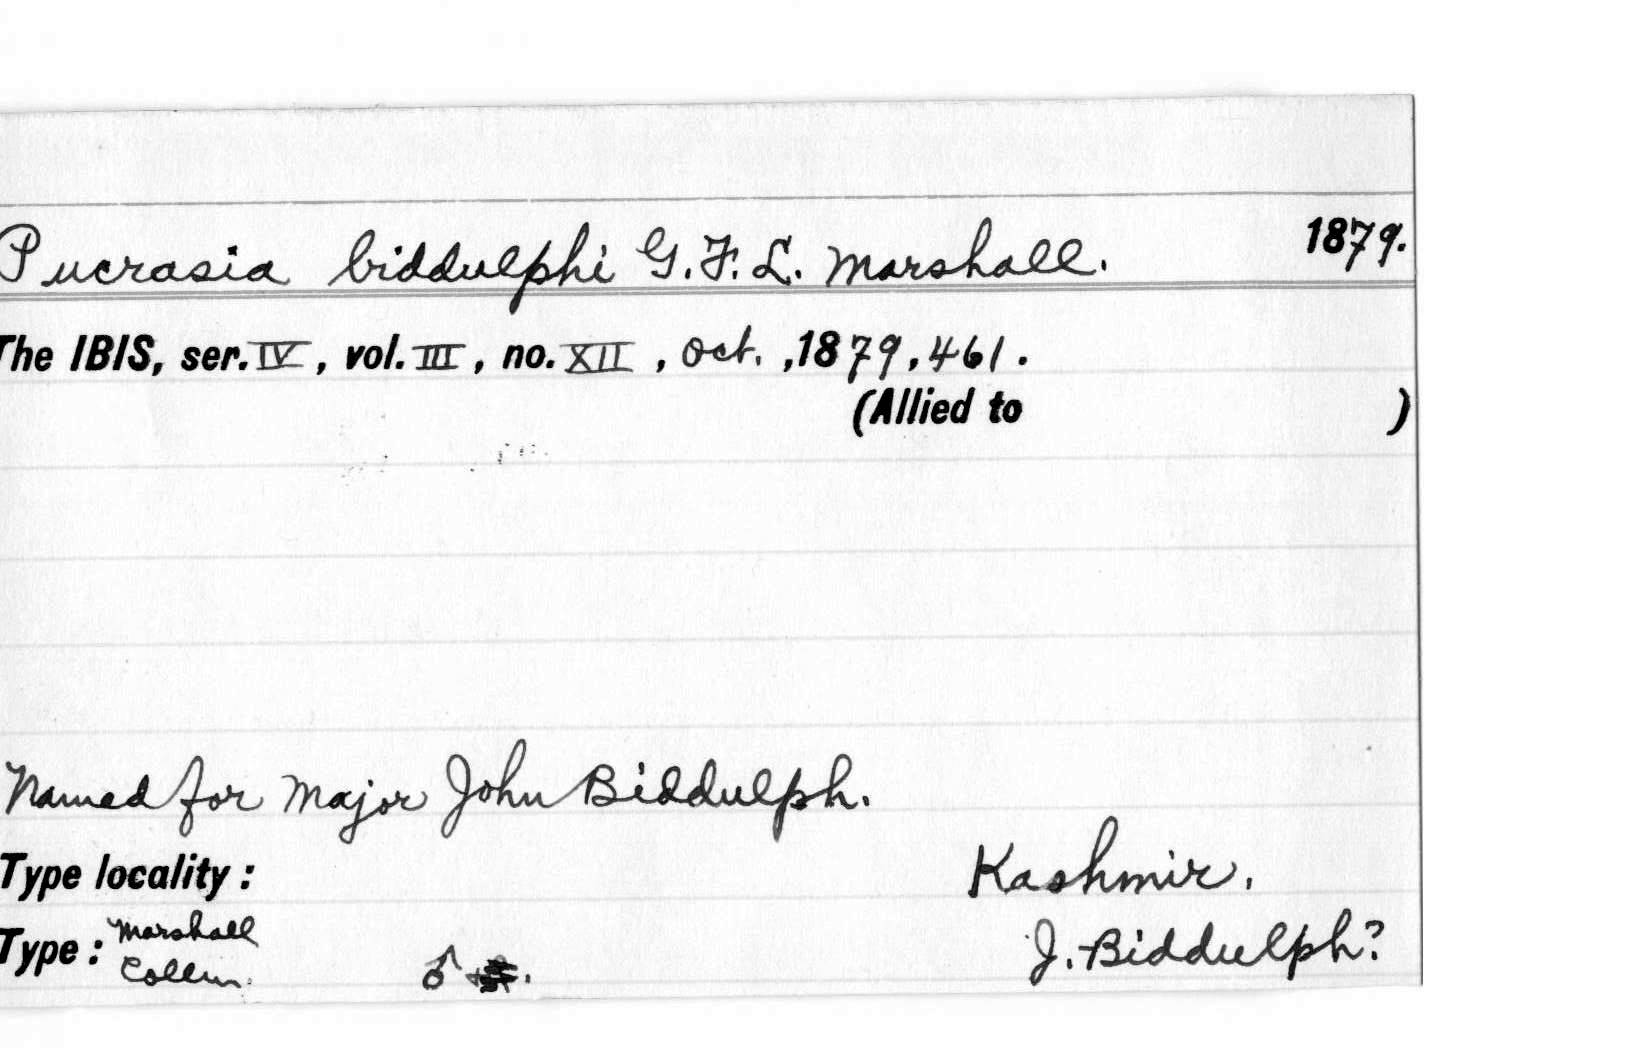 Pucrasia biddulphi G.F.L. Marshall. 1879.
The IBIS, ser. IV, vol. III, no. XII, Oct., 1879, 461.
(Allied to )
Named for Major John Biddulph.
Type locality: Kashmir.
Type: Marshall Colln. ♂ J. Biddulph?